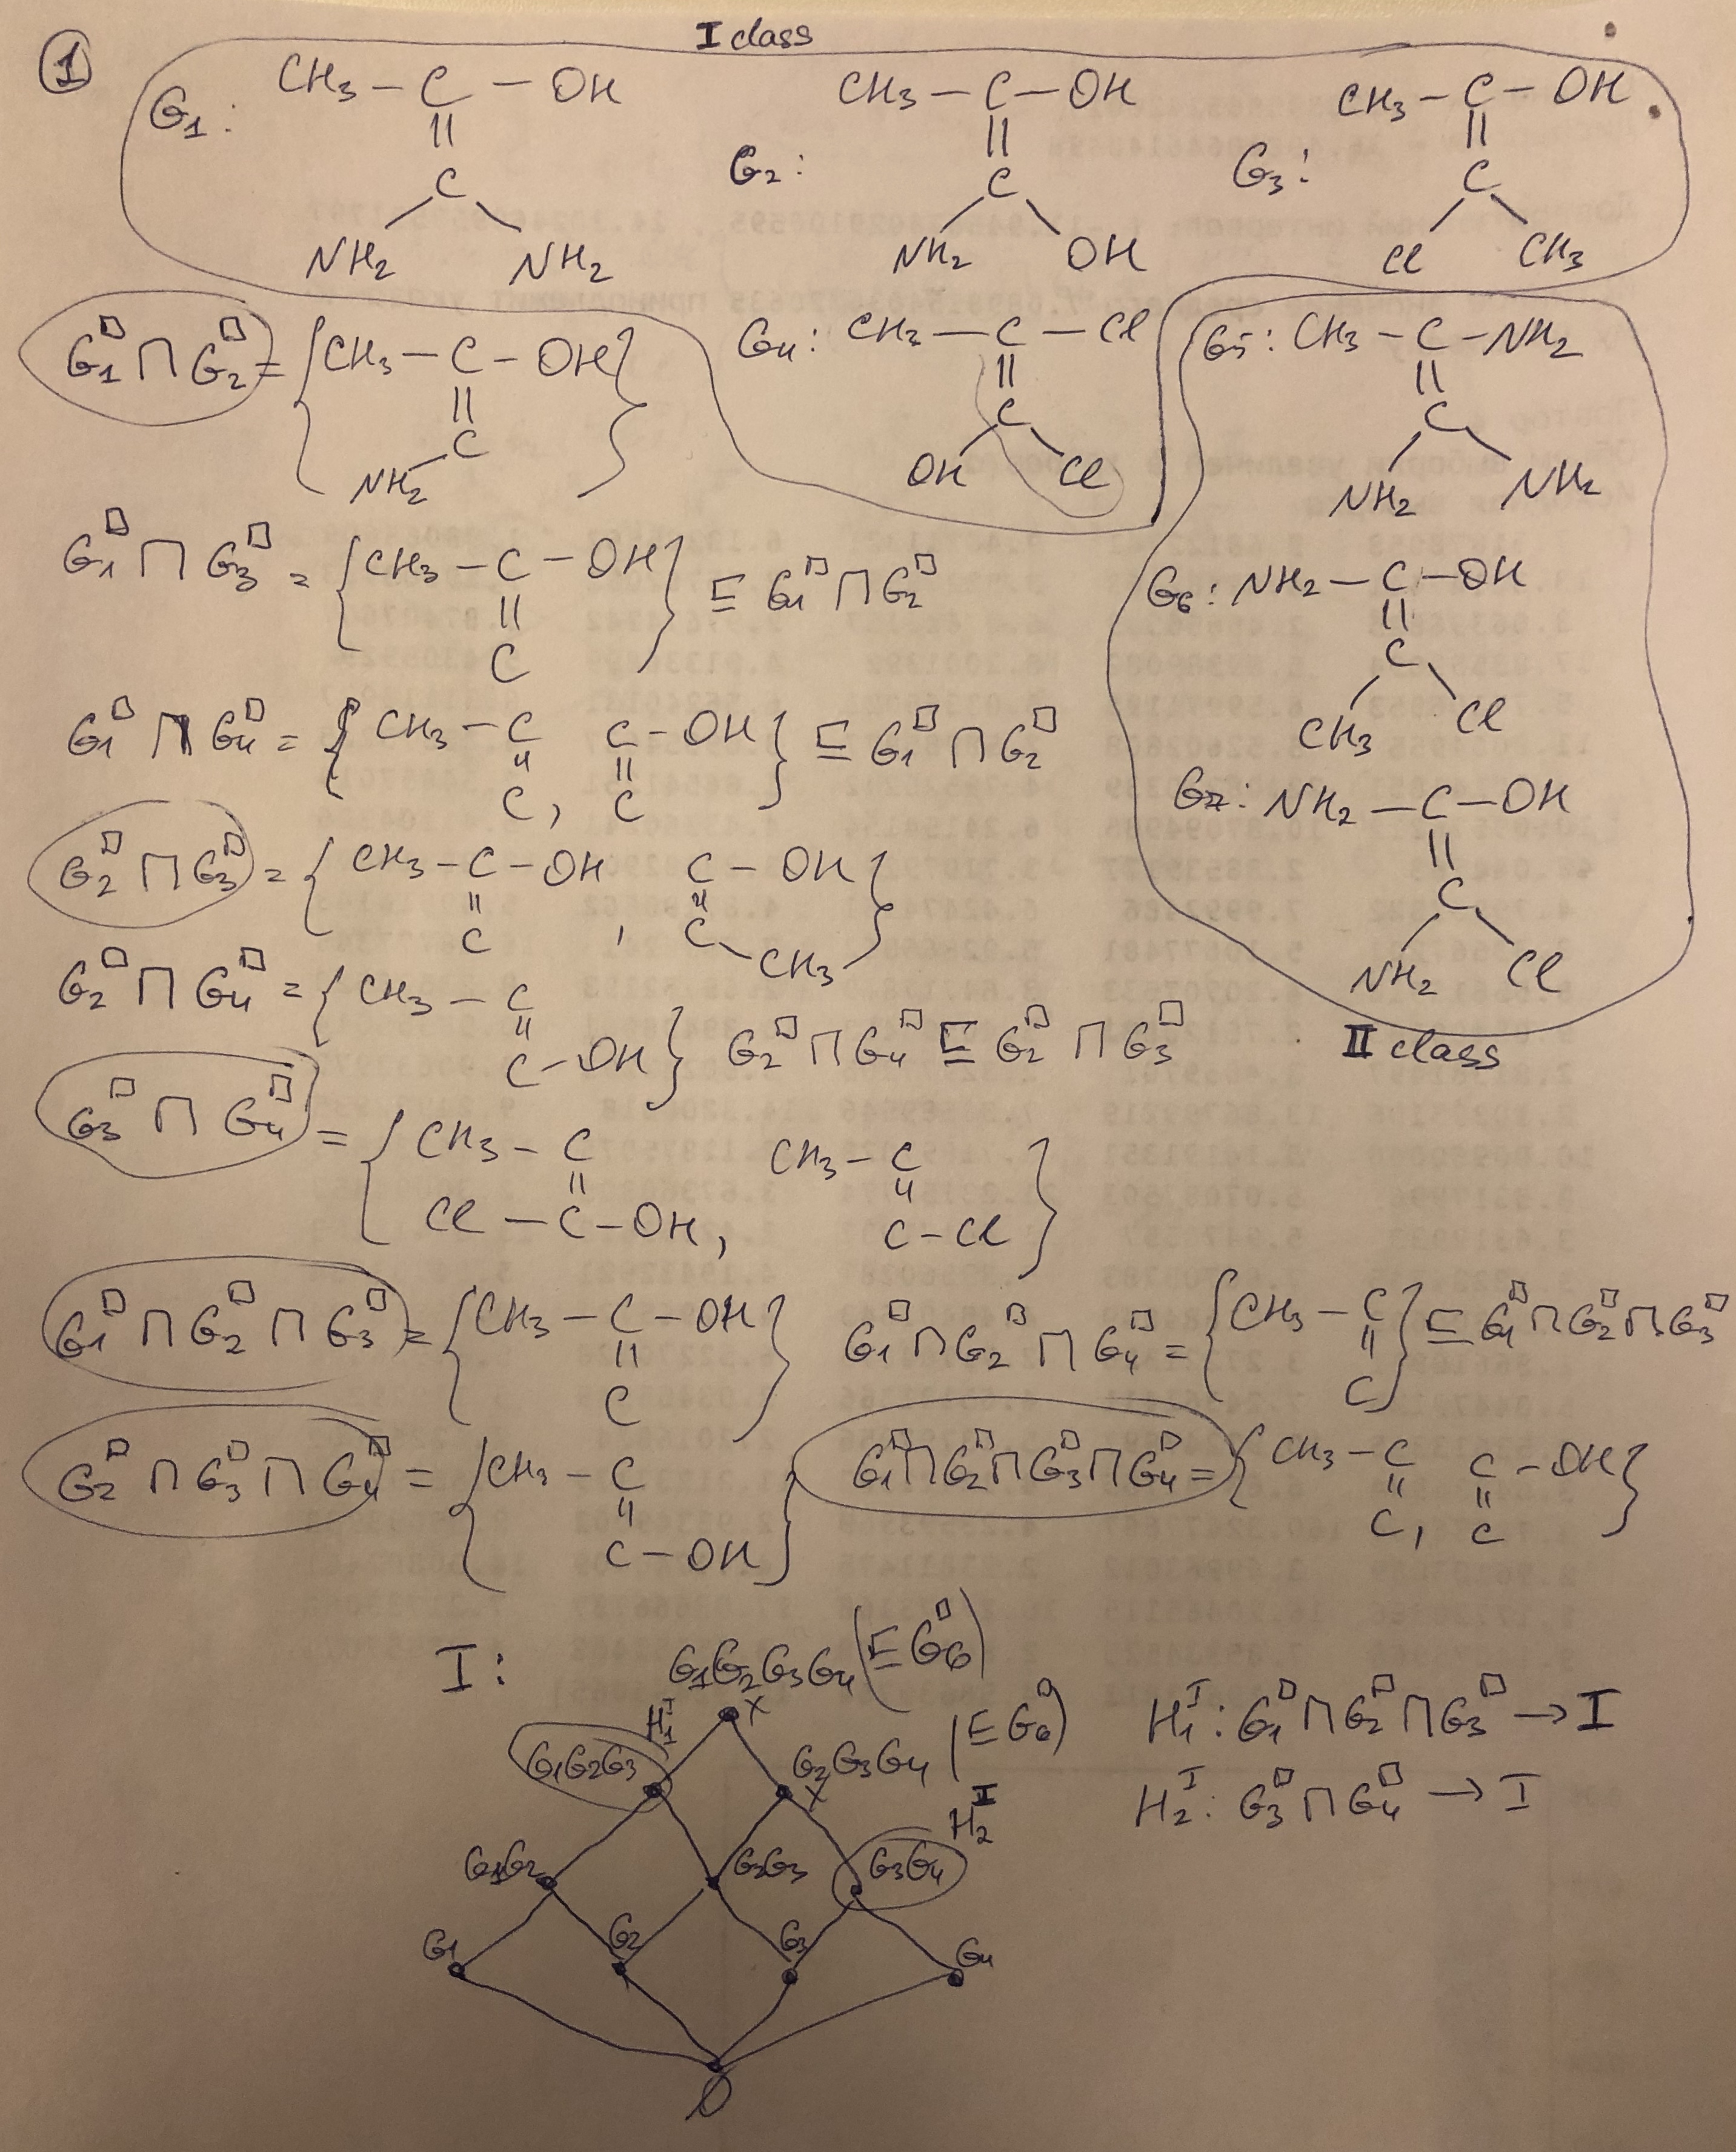 ① I class
G₁: CH₃ – C – OH
||
C
NH₂ NH₂
G₂: CH₃ – C – OH
||
C
NH₂ OH
G₃: CH₃ – C – OH
||
C
Cl CH₃
G₁□ ⊓ G₂□ = { CH₃ – C – OH
||
C
NH₂ }
G₄: CH₃ – C – Cl
||
C
OH Cl
G₅: CH₃ – C – NH₂
||
C
NH₂ NH₂
G₁□ ⊓ G₃□ = { CH₃ – C – OH
||
C } ⊑ G₁□ ⊓ G₂□
G₆: NH₂ – C – OH
||
C
CH₃ Cl
G₁□ ⊓ G₄□ = { CH₃ – C
||
C , C – OH
||
C } ⊑ G₁□ ⊓ G₂□
G₇: NH₂ – C – OH
||
C
NH₂ Cl
II class
G₂□ ⊓ G₃□ = { CH₃ – C – OH
||
C , C – OH
||
C – CH₃ }
G₂□ ⊓ G₄□ = { CH₃ – C
||
C – OH } G₂□ ⊓ G₄□ ⊑ G₂□ ⊓ G₃□
G₃□ ⊓ G₄□ = { CH₃ – C
||
Cl – C – OH , CH₃ – C
||
C – Cl }
G₁□ ⊓ G₂□ ⊓ G₃□ = { CH₃ – C – OH
||
C }
G₁□ ⊓ G₂□ ⊓ G₄□ = { CH₃ – C
||
C } ⊑ G₁□ ⊓ G₂□ ⊓ G₃□
G₂□ ⊓ G₃□ ⊓ G₄□ = { CH₃ – C
||
C – OH }
G₁□ ⊓ G₂□ ⊓ G₃□ ⊓ G₄□ = { CH₃ – C
||
C , C – OH
||
C }
I: G₁G₂G₃G₄ (⊑ G₆□)
H₁ᴵ x
G₁G₂G₃ G₂G₃G₄ (⊑ G₆□)
x
H₂ᴵ
G₁G₂ G₂G₃ G₃G₄
G₁ G₂ G₃ G₄
∅
H₁ᴵ: G₁□ ⊓ G₂□ ⊓ G₃□ → I
H₂ᴵ: G₃□ ⊓ G₄□ → I